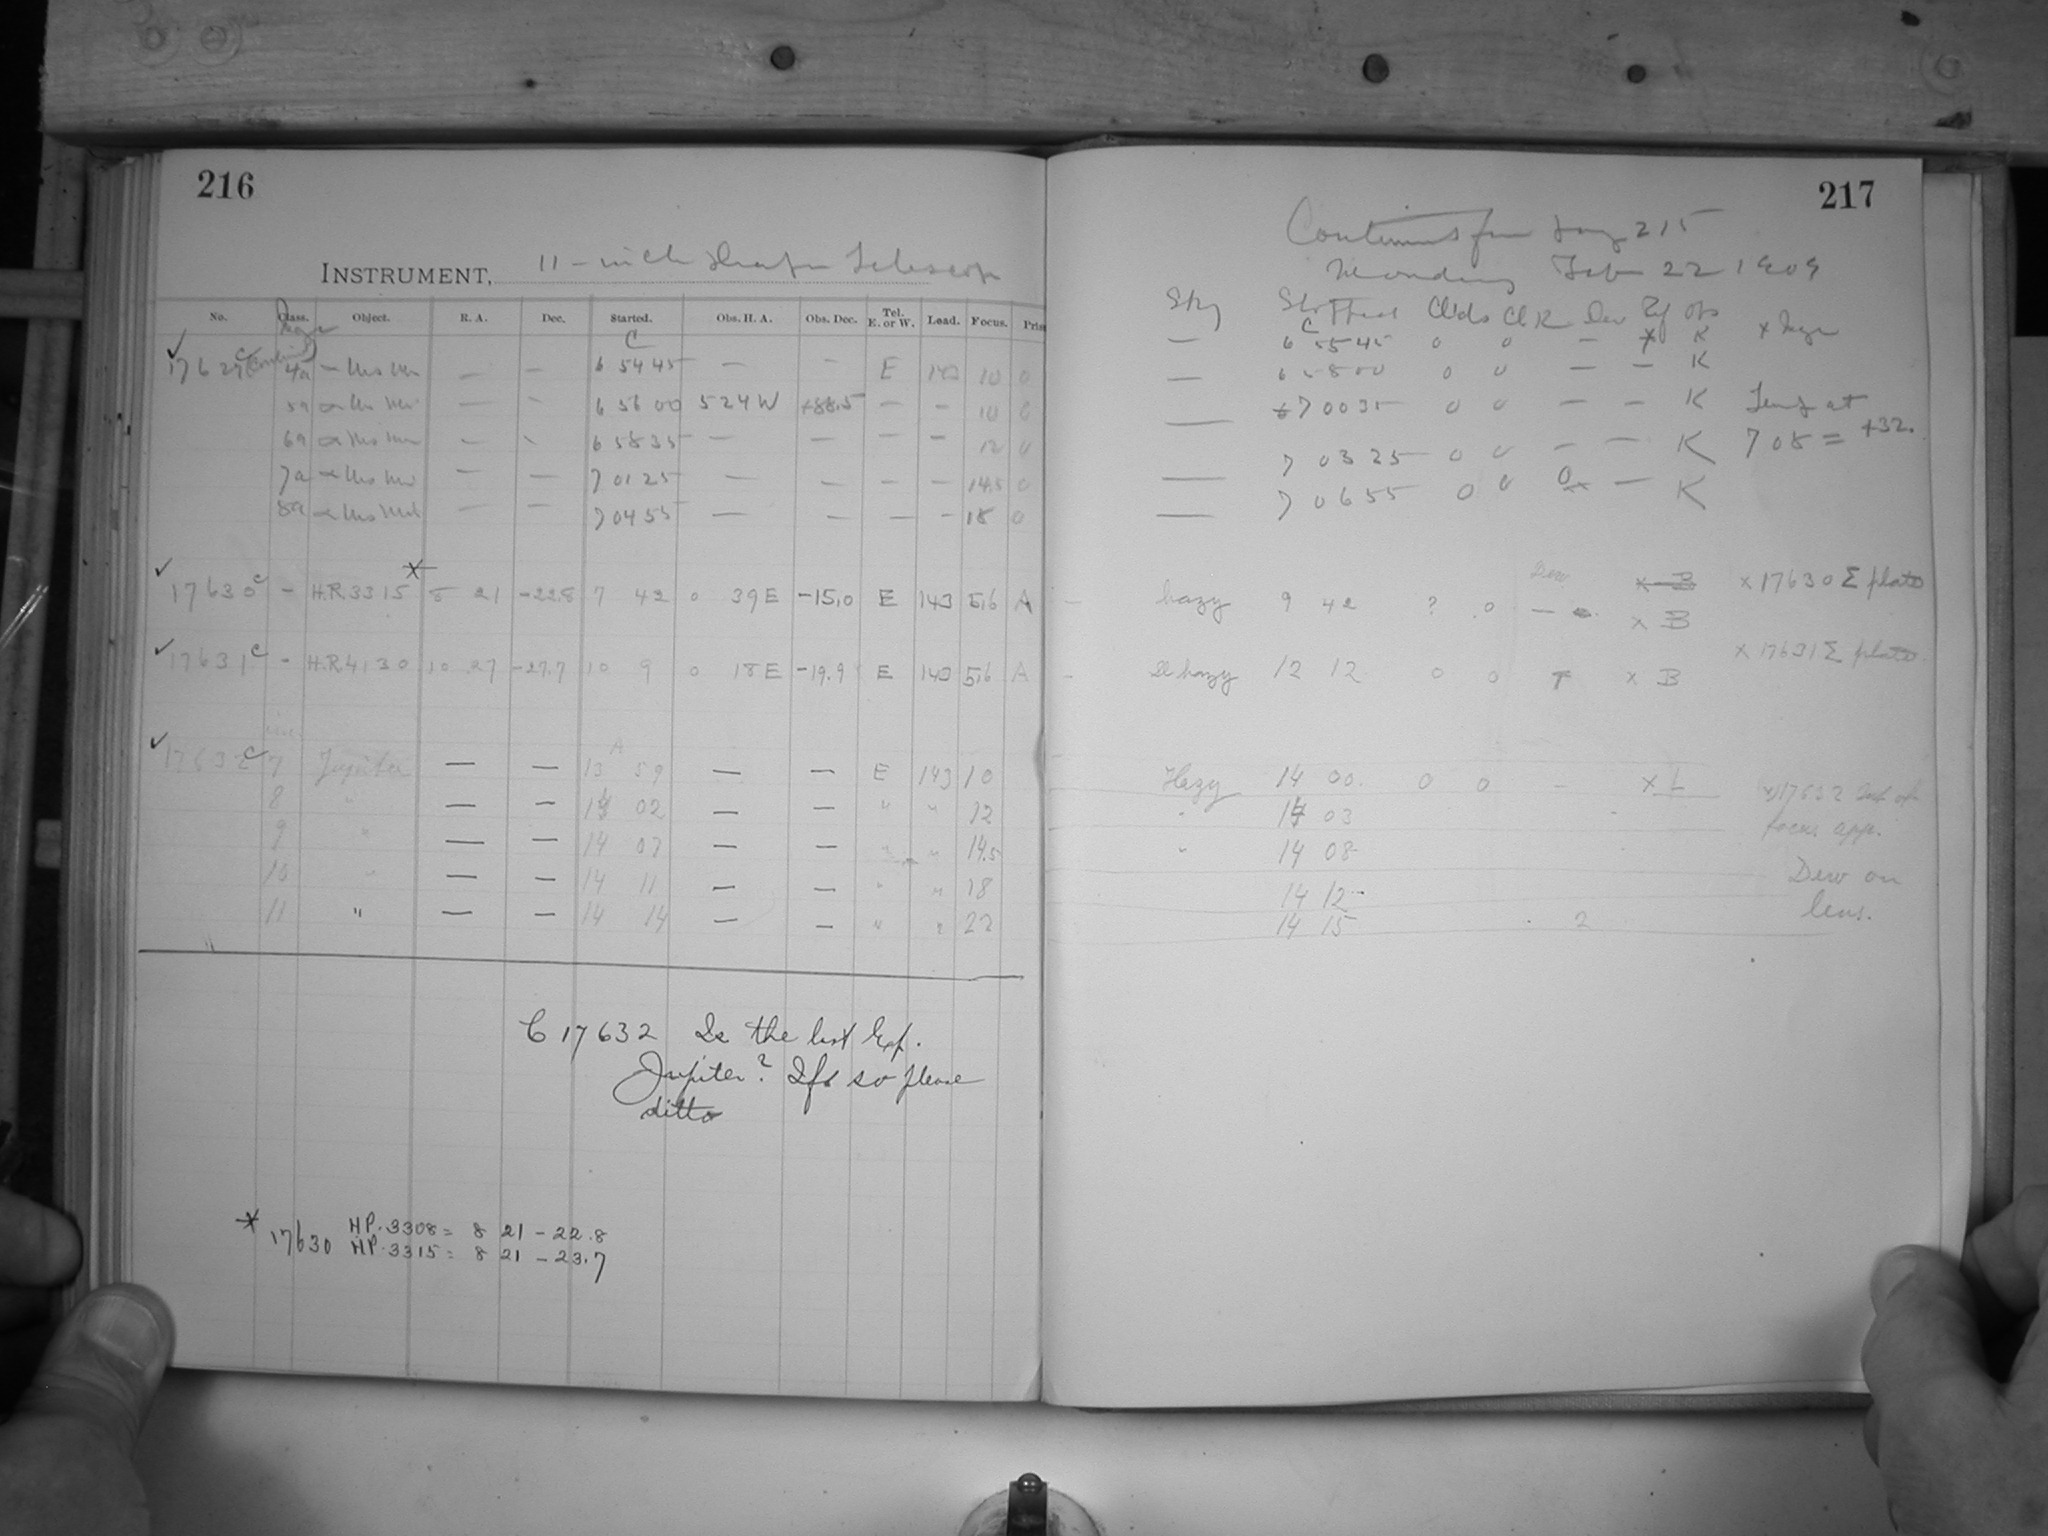 216
INSTRUMENT, 11-inch Draper Telescope
No. Class. Object. R. A. Dec. Started. Obs. H. A. Obs. Dec. Tel. E. or W. Load. Focus. Pris
C
4a — — 6 54 45 — — E 143 10 0
5a — - 6 56 00 5 24 W +88.5 — — 10 0
6a — - 6 58 35 — — — — 12 0
7a — — 7 01 25 — — — — 14.5 0
8a — — 7 04 55 — — — — 18 0
✓ 17630 c - H.R. 3315 * 8 21 -22.8 7 42 0 39 E -15.0 E 143 5.6 A
✓ 17631 c - H.R. 4130 10 27 -27.7 10 9 0 18 E -19.9 E 143 5.6 A
A
✓ 17632 c 7 Jupiter — — 13 59 — — E 143 10
8 " — — 14 02 — — " " 12
9 " — — 14 07 — — " " 14.5
10 " — — 14 11 — — " " 18
11 " — — 14 14 — — " " 22
C 17632 Is the last Exp.
Jupiter? If so please
ditto
* 17630 HP. 3308 = 8 21 - 22.8
HP. 3315 = 8 21 - 23.7
217
Continued from Page 215
Monday Feb 22 1909
Sky Stopped Clds Cl R Dew Obs
C
— 6 55 45 0 0 — x K
— 6 58 00 0 0 — — K
— 7 00 35 0 0 — — K Temp at
— 7 03 25 0 0 — — K 7 08 = +32.
— 7 06 55 0 0 0 — K
Dew
x B x 17630 Σ plate
hazy 9 42 ? 0 — x B
x 17631 Σ plate
Sl hazy 12 12 0 0 T x B
Hazy 14 00 0 0 - x L x 17632 Out of
" 14 03 focus app.
" 14 08
14 12 Dew on
14 15 2 lens.